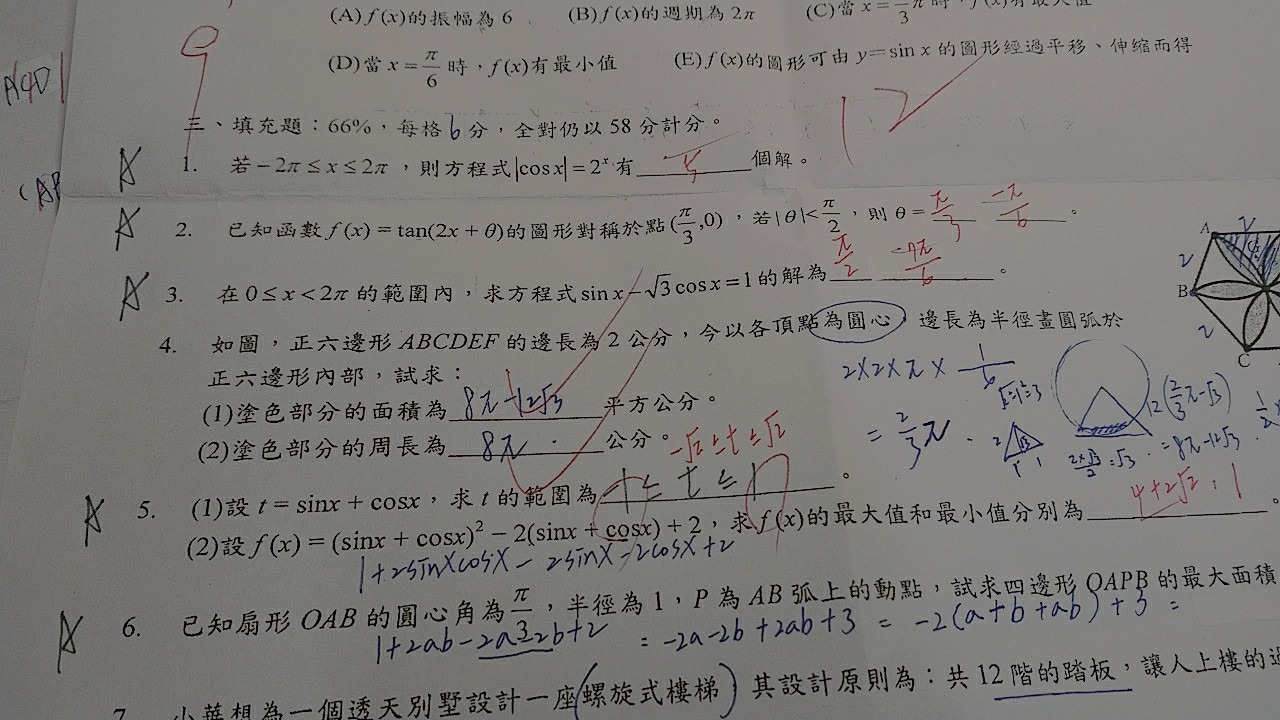 (A) f(x)的振幅為 6 (B) f(x)的週期為 2π (C)當 x =
(D)當 x = π/6 時，f(x)有最小值 (E) f(x)的圖形可由 y=sin x 的圖形經過平移、伸縮而得
12
三、填充題：66%，每格6分，全對仍以 58 分計分。
A 1. 若 −2π ≤ x ≤ 2π ，則方程式|cos x| = 2^x 有 5 個解。
A 2. 已知函數 f(x) = tan(2x + θ)的圖形對稱於點(π/3,0)，若|θ|< π/2，則 θ = π/3 -π/6 。
A 3. 在 0 ≤ x < 2π 的範圍內，求方程式 sin x − √3 cos x = 1 的解為 π/2 7π/6 。
4. 如圖，正六邊形 ABCDEF 的邊長為 2 公分，今以各頂點為圓心，邊長為半徑畫圓弧於
正六邊形內部，試求：
(1)塗色部分的面積為 8π-12√3 平方公分。
(2)塗色部分的周長為 8π 公分。
2×2×π× 1/6
= 2/3 π
12(2/3 π-√3)
=8π-12√3
2×√3/2 =√3
A
B
C
2
2
-√2≤t≤√2
A 5. (1)設 t = sinx + cosx，求 t 的範圍為 -1≤ t ≤1 。
(2)設 f(x) = (sinx + cosx)² − 2(sinx + cosx) + 2，求 f(x)的最大值和最小值分別為 4+2√2 : 1 。
1+2sinxcosx - 2sinx-2cosx+2
A 6. 已知扇形 OAB 的圓心角為 π/3，半徑為 1，P 為 AB 弧上的動點，試求四邊形 OAPB 的最大面積
1+2ab-2a-2b+2 = -2a-2b+2ab+3 = -2(a+b+ab)+3 =
7. 小華想為一個透天別墅設計一座(螺旋式樓梯) 其設計原則為：共 12 階的踏板，讓人上樓的